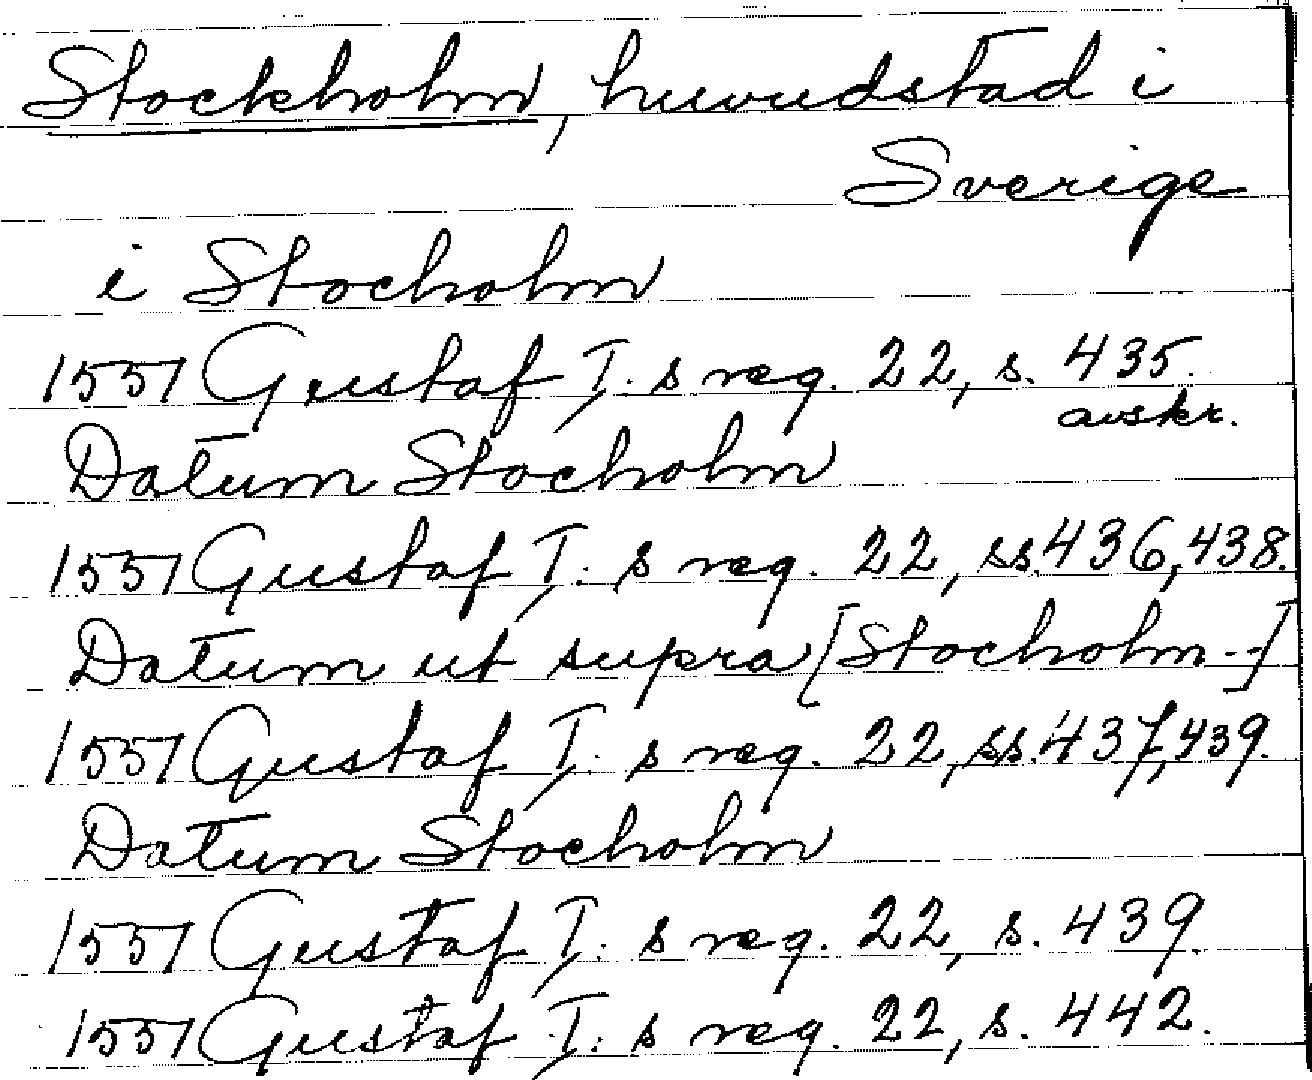 Stockholm, huvudstad i
Sverige
i Stocholm
1551 Gustaf I:s reg. 22, s. 435.
avskr.
Datum Stocholm
1551 Gustaf I:s reg. 22, ss. 436, 438.
Datum ut supra [Stocholm--]
1551 Gustaf I:s reg. 22, ss. 437, 439.
Datum Stocholm
1551 Gustaf I:s reg. 22, s. 439.
1551 Gustaf I:s reg. 22, s. 442.